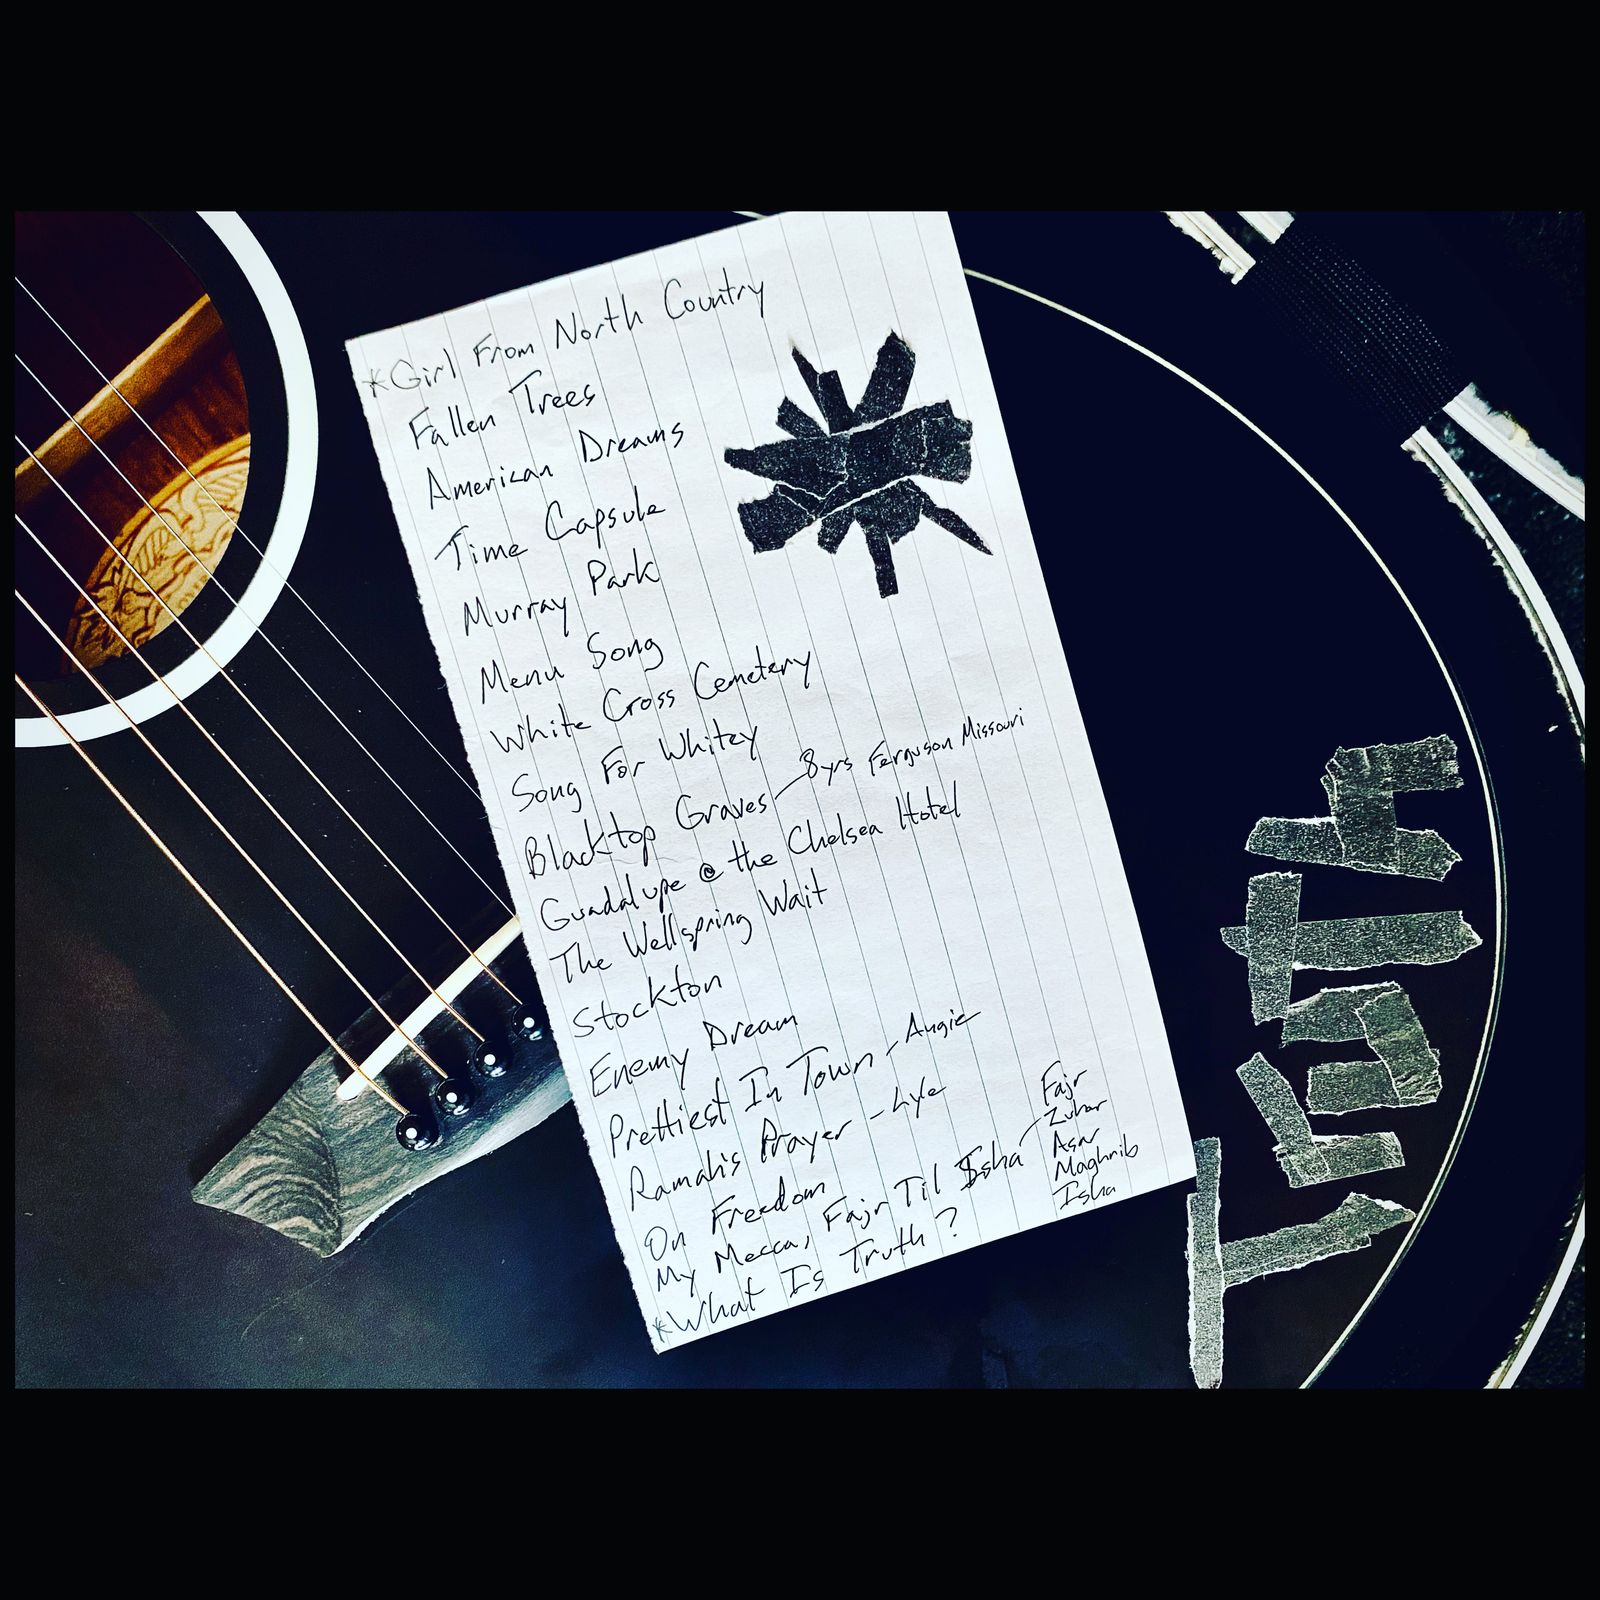 *Girl From North Country
Fallen Trees
American Dreams
Time Capsule
Murray Park
Menu Song
White Cross Cemetery
Song For Whitey
Blacktop Graves - 8yrs Ferguson Missouri
Guadalupe @ the Chelsea Hotel
The Wellspring Wait
Stockton
Enemy Dream
Prettiest In Town - Augie
Ramah's Prayer - Lyle
On Freedom
My Mecca, Fajr Til Isha - Fajr
Zuhar
Asar
Maghrib
Isha
*What Is Truth?
Truth